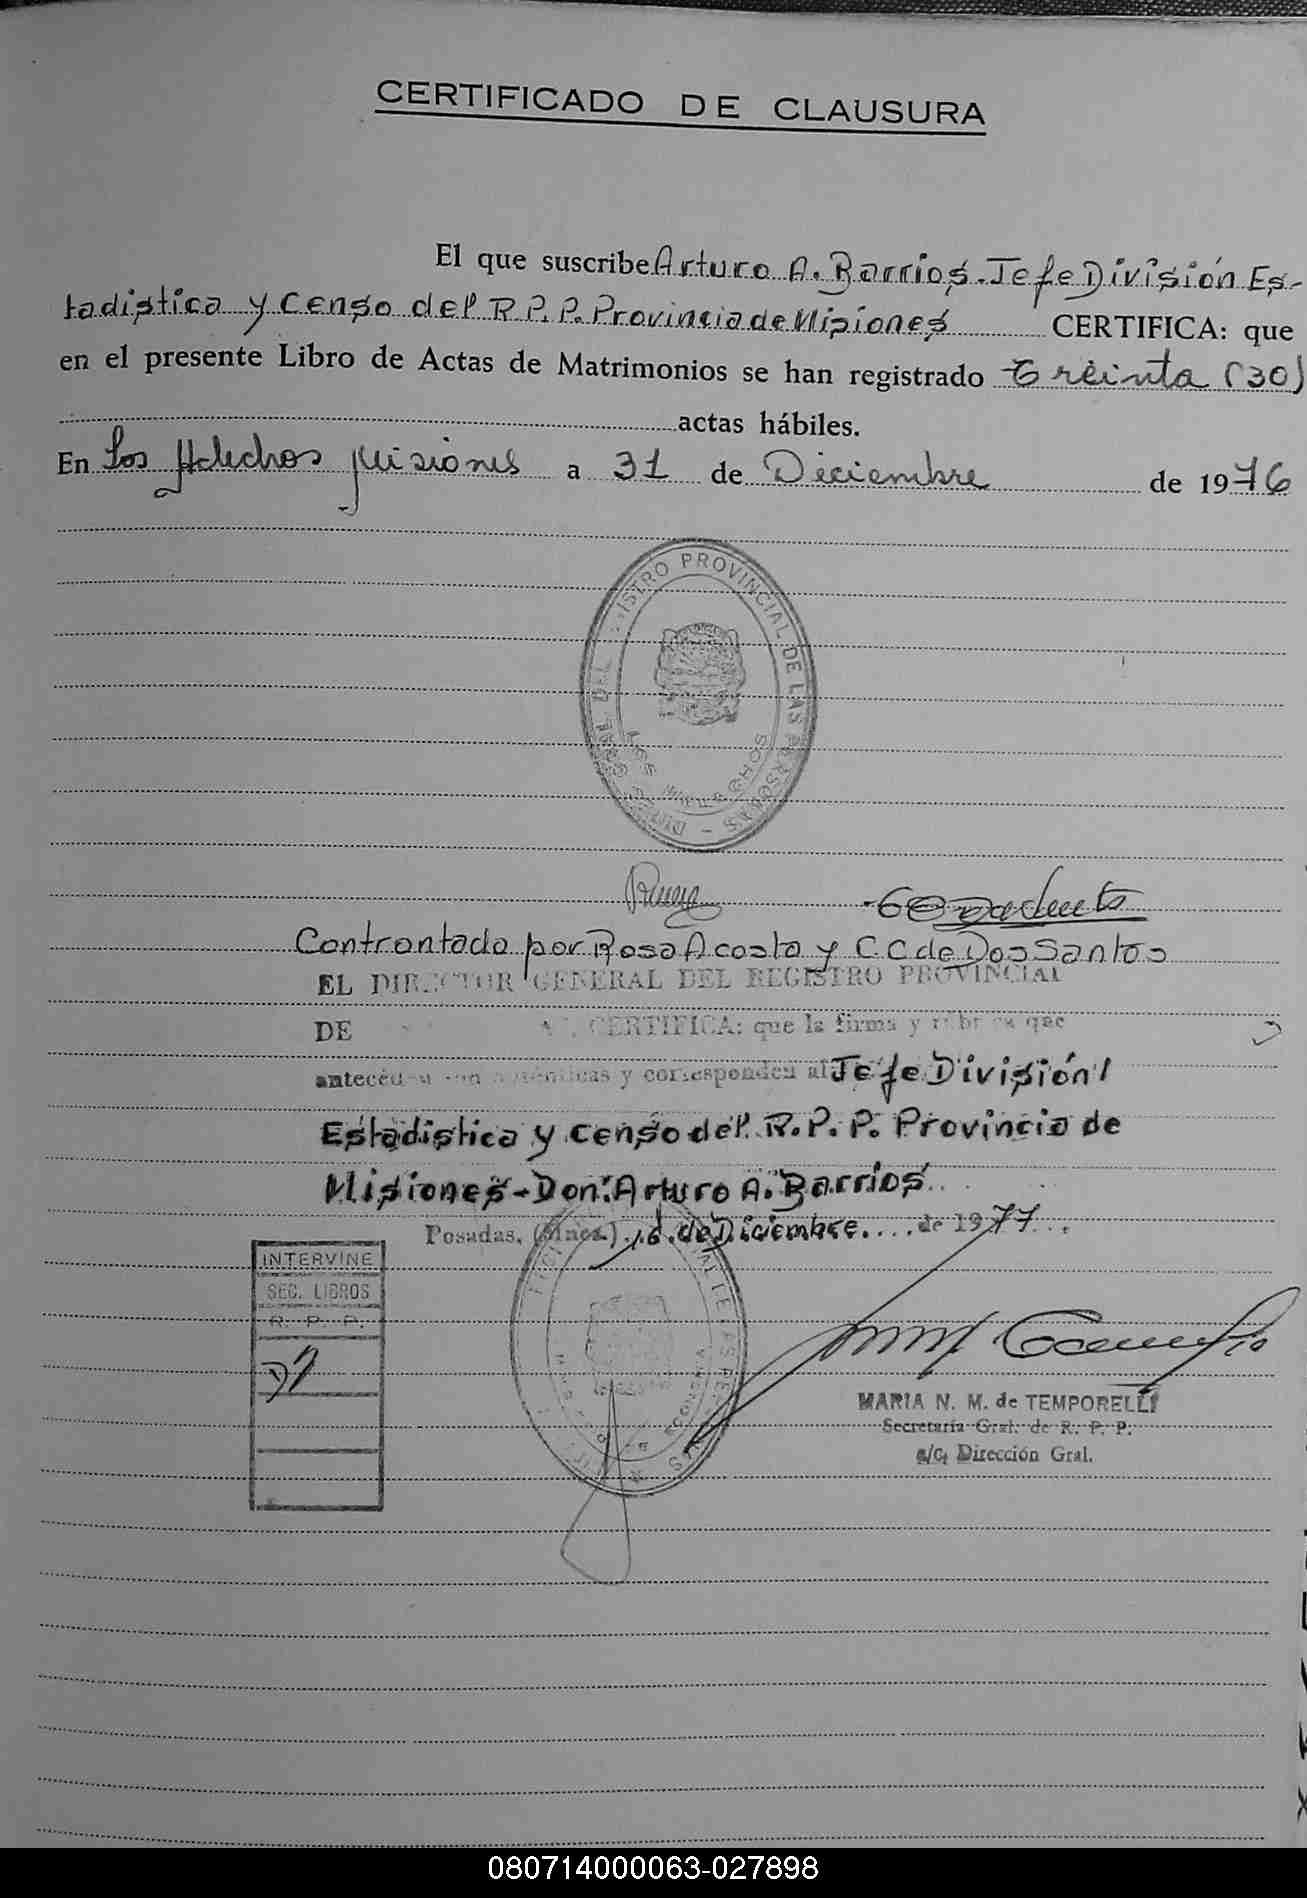 CERTIFICADO DE CLAUSURA
El que suscribe Arturo A. Barrios. Jefe División Es-
tadistica y Censo del R.P.P. Provincia de Misiones CERTIFICA: que
en el presente Libro de Actas de Matrimonios se han registrado Treinta (30)
actas hábiles.
En Los Helechos Misiones a 31 de Diciembre de 1976
REGISTRO PROVINCIAL DE LAS PERSONAS
LOS HELECHOS
Confrontado por Rosa Acosta y C.C de Dos Santos
EL DIRECTOR GENERAL DEL REGISTRO PROVINCIAL
DE CERTIFICA: que la firma y rúbrica que
anteceden son auténticas y corresponden al Jefe División
Estadistica y Censo del R.P.P. Provincia de
Misiones - Don: Arturo A. Barrios
Posadas, (Mnes.) 16 de Diciembre de 1977
INTERVINE
SEC. LIBROS
R. P. P.
MARIA N. M. de TEMPORELLI
Secretaría Gral. de R. P. P.
a/c, Dirección Gral.
080714000063-027898